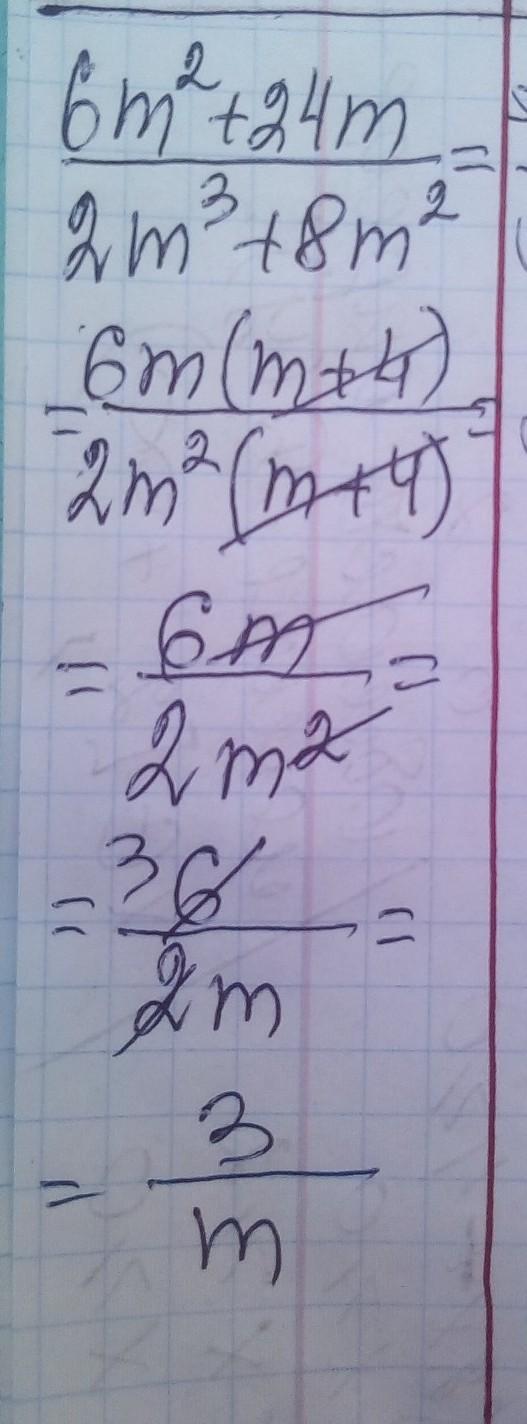 6m²+24m
2m³+8m² =
= 6m(m+4)
2m²(m+4) =
= 6m
2m² =
= ³6
2m =
= 3
m